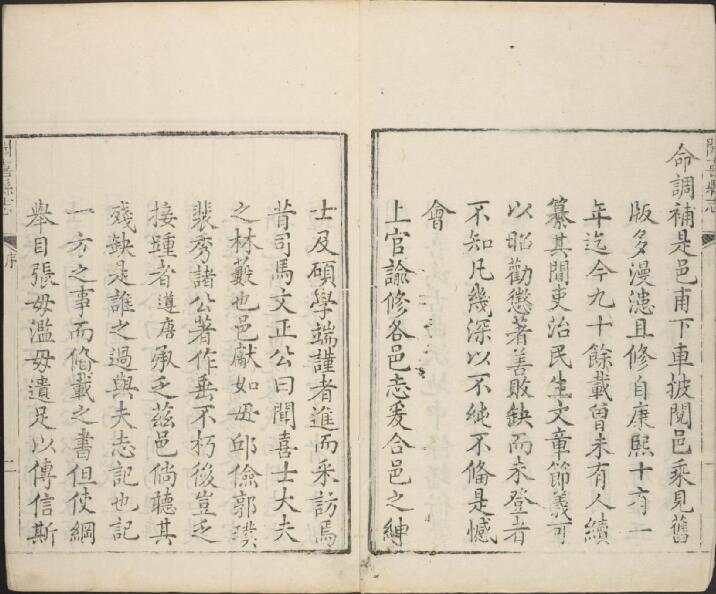 命調補是邑甫下車披閱邑乘見舊
版多漫漶且修自康熙十有一
年迄今九十餘載曾未有人續
纂其間吏治民生文章節義可
以昭勸懲著善敗缺而未登者
不知凡幾深以不純不備是憾
會
上官諭修各邑志爰合邑之紳
士及碩學端謹者進而采訪焉
昔司馬文正公曰聞喜士大夫
之林藪也邑獻如毋邱儉郭璞
裴秀諸公著作垂不朽後豈乏
接踵者遵唐承乏茲邑倘聽其
殘缺是誰之過與夫志記也記
一方之事而俻載之書但使綱
舉目張毋濫毋遺足以傳信斯
聞喜縣志
序
二